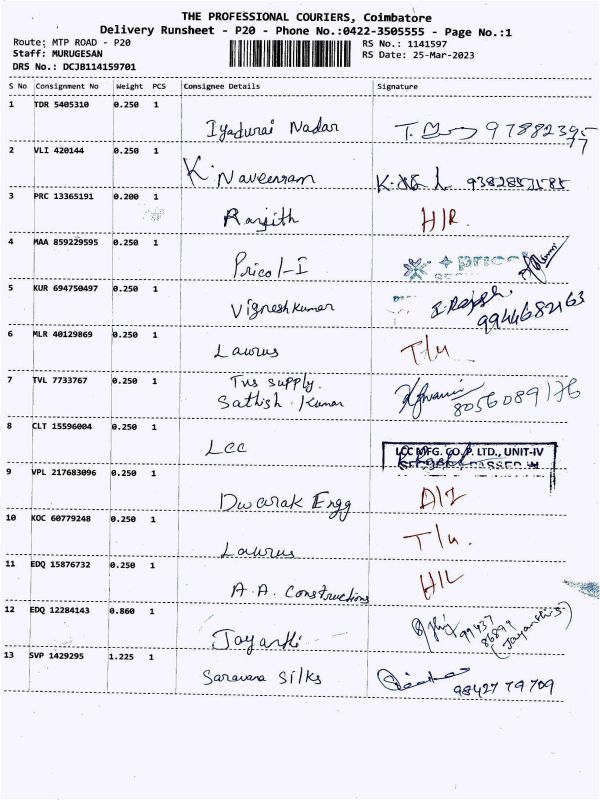 THE PROFESSIONAL COURIERS, Coimbatore
Delivery Runsheet - P20 - Phone No.:0422-3505555 - Page No.:1
Route: MTP ROAD - P20 RS No.: 1141597
Staff: MURUGESAN RS Date: 25-Mar-2023
DRS No.: DCJB114159701
S No Consignment No Weight PCS Consignee Details Signature
1 TDR 5405310 0.250 1
Iyadurai Nadar
2 VLI 420144 0.250 1
K. Naveenram K. 9382852585
3 PRC 13365191 0.200 1
Ranjith H/R.
4 MAA 859229595 0.250 1
Pricol-I pricol
5 KUR 694750497 0.250 1
Vigneshkumar 9944682163
6 MLR 40129869 0.250 1
Laurus T/u
7 TVL 7733767 0.250 1 Tvs supply.
Sathish Kumar 8056089176
8 CLT 15596004 0.250 1
Lcc LCC MFG. CO. P. LTD., UNIT-IV
9 VPL 217683096 0.250 1
Dwarak Engg D/L
10 KOC 60779248 0.250 1
Laurus T/u.
11 EDQ 15876732 0.250 1
A.A. Constructions H/L
12 EDQ 12284143 0.860 1
Jayanthi 99437
86899
(Jayanthi.S.)
13 SVP 1429295 1.225 1
Saravana Silks 98427 79709